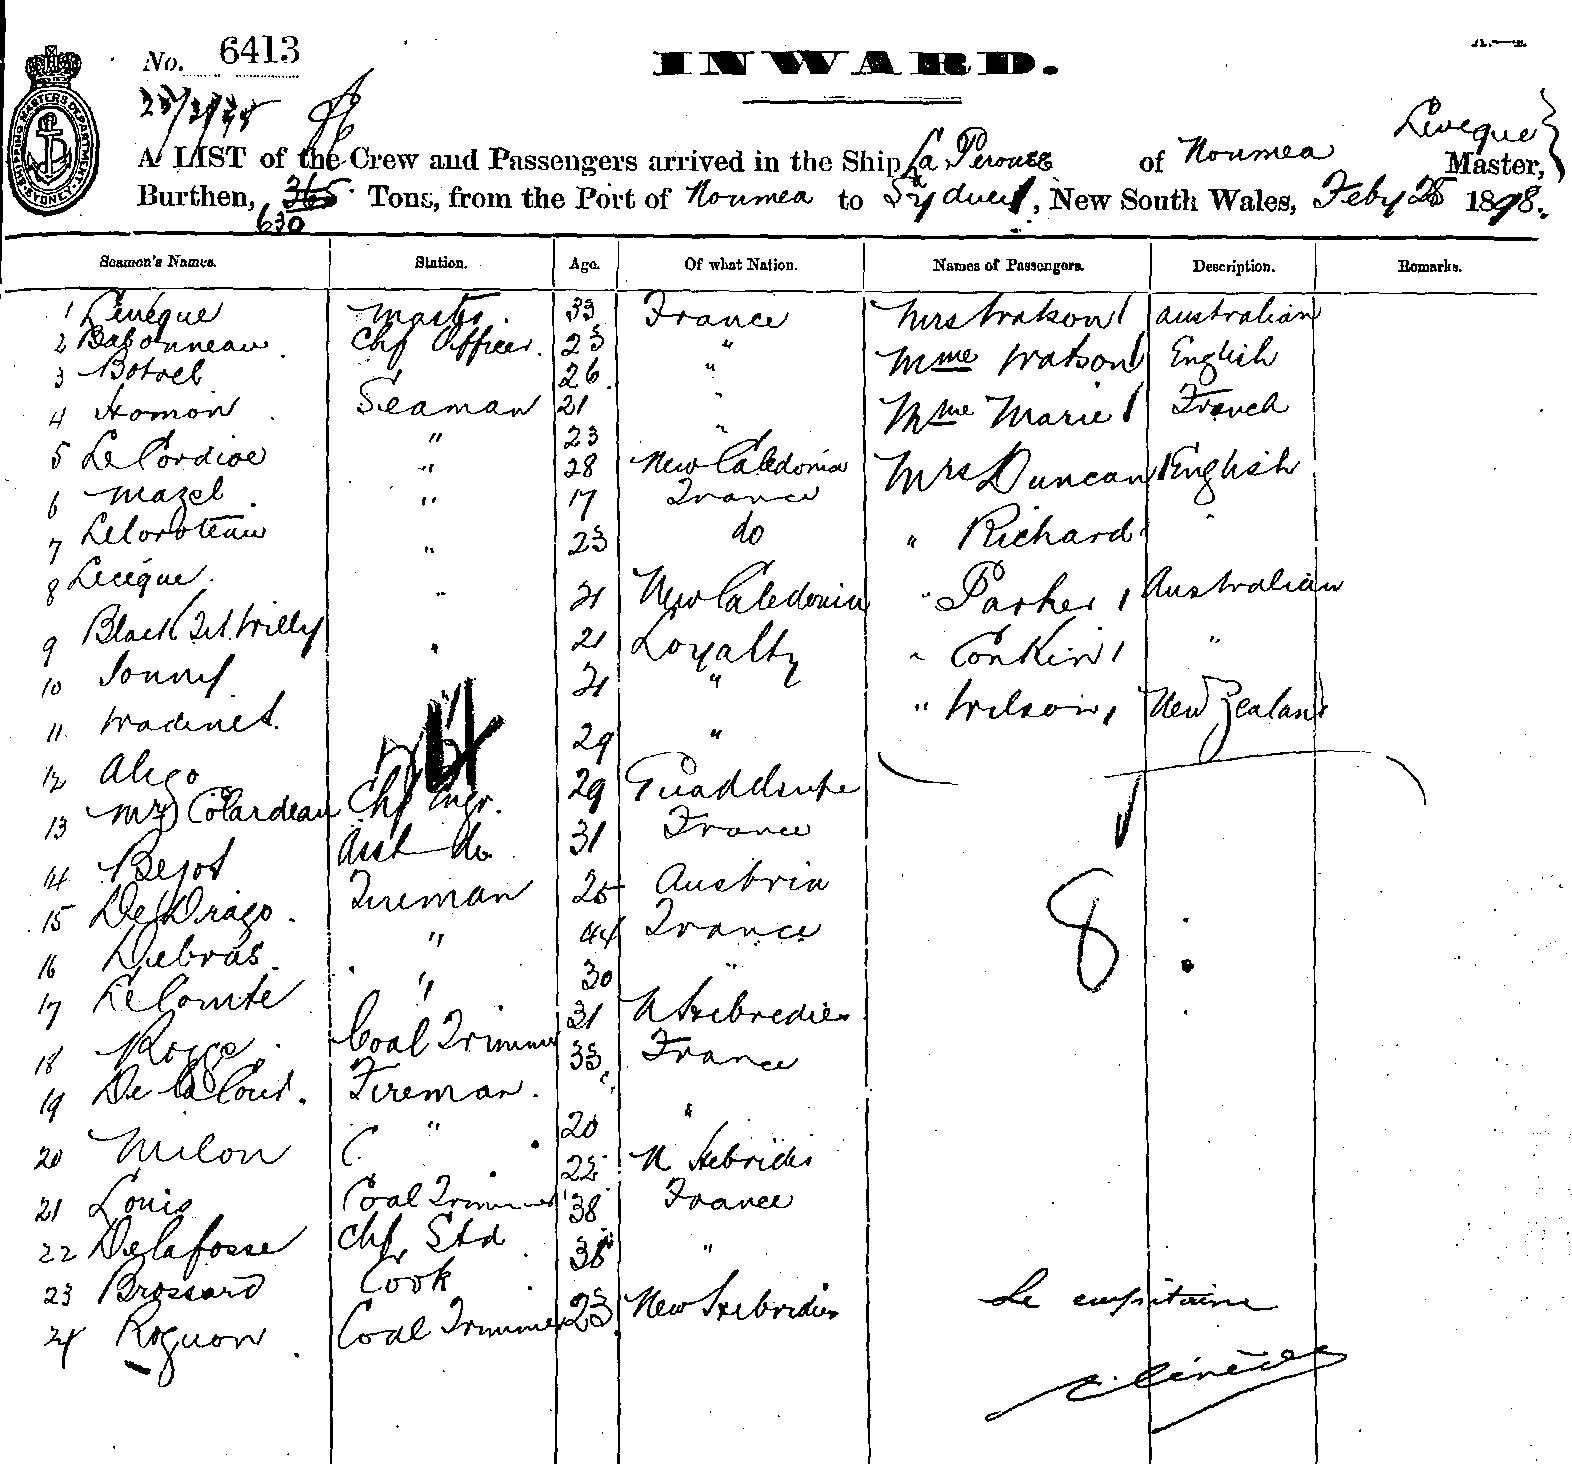 No. 6413
INWARD.
Leveque
A LIST of the Crew and Passengers arrived in the Ship La Perouse of Noumea Master,
Burthen, 365 Tons, from the Port of Noumea to Sydney, New South Wales, Feby 25 1898.
630
Seamen's Names. Station. Age. Of what Nation. Names of Passengers. Description. Remarks.
1 Leveque Master. 33 France Mrs Watson australian
2 Babonneau Chf Officer. 23 " Mme Watson English
3 Botrel 26 " Mme Marie French
4 Homon Seaman 21 "
5 Le Cordioe " 23 " Mrs Duncan English
6 Mazel " 28 New Caledonia
7 Leloroteau " 17 France " Richard "
8 Leceque " 23 do " Parker Australian
9 Black Tit Willy " 21 New Caledonia " Conkin "
10 Jonny " 21 Loyalty " Wilson New Zealand
11 Wadinet 21 "
12 Aligo 29 "
13 Mr Colardeau Chf Engr. 29 Guadeloupe
14 Bejot Asst do 31 France
15 De Drago Fireman 25 Austria
16 Debras " 44 France
17 Le Comte " 30 "
18 Coal Trimmer 31 N Hebredies
19 De la Cour. Fireman. 33 France
20 Milon " 20 "
21 Louis Coal Trimmer 22 N Hebrides
22 Delafosse Chf Std 38 France
23 Brossard Cook 38 "
24 Rognon Coal Trimmer 23 New Hebrides
8
Le capitaine